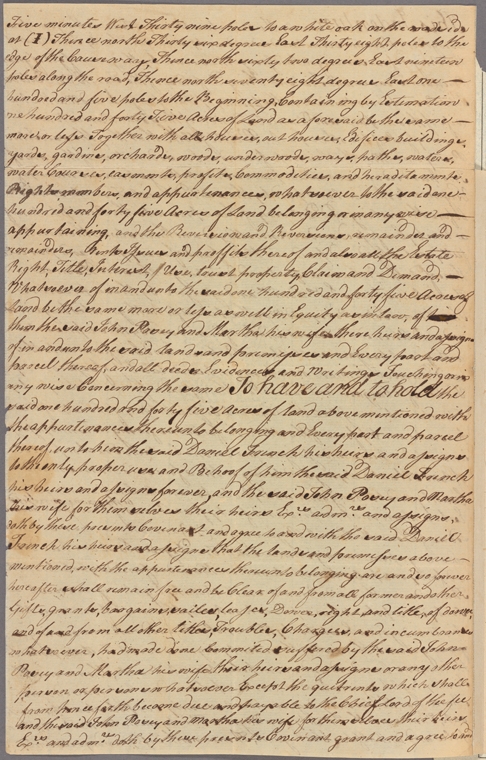 Five minutes West Thirty nine poles to a white oak on the road side
at (I) Thence north Thirty six degrees East Thirty eight poles to the
Edge of the Causeway, Thence north sixty two degrees East nineteen
poles along the road, Thence north seventy eight degrees East one
hundred and five poles to the Beginning, Containing by Estimation
one hundred and forty Five Acres of Land as aforesaid be the same
more or less Together with all houses, out houses, Edifices buildings,
yards, gardins, orchards, woods, underwoods, ways, paths, waters,
water Courses, easments, profits, Commodities, and heradiaments
Rights members, and appurtenances, whatsoever to the said one
hundred and forty five Acres of Land belonging or in any wise
appurtaining, and the Reversion and Reversions, remainder and
remainders, Rents Issues and proffits thereof and also all the Estate
Right, Title, Interest, Use, trust property, Claim and Demand,
Whatsoever of in and unto the said one hundred and forty five Acres of
Land be the same more or less as well in Equity as in law, of
them the said John Povey and Martha his wife there heirs and assigns
of in and unto the said land and premisses and Every part and
parcel thereof, and all deeds Evidences, and Writings Touching or in
any wise Concerning the same To have and to hold the
said one hundred and forty five Acres of land above mentioned with
the appurtenances thereunto belonging and Every part and parcel
thereof, unto him the said Daniel French his heirs and assigns
to the only proper use and Behoof of him the said Daniel French
his heirs and assigns forever, and the said John Povey and Martha
his wife for them selves their heirs Exrs admrs and assigns,
doth by these presents Covenant and agree to and with the said Daniel
French his heirs and assigns that the land and premisses above
mentioned, with the appurtenances thereunto belonging are and so forever
hereafter shall remain free and be Clear of and from all former and other
Gifts, grants, Bargains, sailes, leases, Dower, right and title, of dower
and of and from all other titles, Troubles, Charges, and incumbrances
whatsoever, had made done Committed or suffered by the said John
Povey and Martha his wife their heirs and assigns or any other
person or persons whatsoever Except the quitrents which shall
from hence forth become due and payable to the Chief lord of the fee
and the said John Povey and Martha his wife for themselves their heirs
Exrs and admrs doth by these presents Covinant grant and agree to and